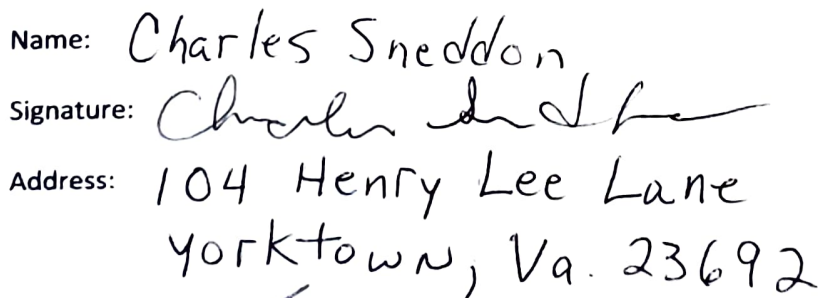 Name: Charles Sneddon
Signature: Charles Sneddon
Address: 104 Henry Lee Lane
Yorktown, Va. 23692